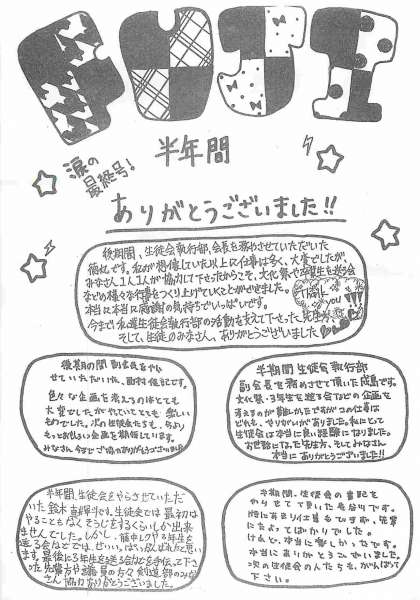 半年間
涙の
最終号!
ありがとうございました!!
後期間、生徒会執行部、会長を務めさせていただいた
です。私が想像していた以上に仕事は多く、大変でしたが、
みなさん1人1人が協力して下さったからこそ、文化祭や卒業生を送る会
などの様々な行事をつくり上げていくことができました。
本当に本当に感謝の気持ちでいっぱいです。
Thank you
今まで私達生徒会執行部の活動を支えて下さった先生方、
そして、生徒のみなさん、ありがとうございました
後期の間 副会長をやら
せていただいた、です。
色々な企画を考えるのはとても
大変でしたがやていてとても楽しい
ものでした。次の生徒会たちも、今より
もっとおもしろい企画を期待しています。
みなさん 今までご協力ありがとうございました
半期間 生徒会執行部
副会長を務めさせて頂いた成島です。
文化祭・3年生を送る会などの企画を
考えるのが難しかったですが、この仕事は
どれも、やりがいがありました。私にとって
生徒会は本当に良い経験になりました。
お世話になった先生方、そしてみなさん
本当にありがとうございました!!
半年間、生徒会をやらさせていただ
いた鈴木です。生徒会では最初は
やることもなくそうじをするくらいしか出来
ませんでした。しかし、後半レクや3年生を
送る会などでは、だいぶ、はたらけたと思い
ます。最後に3年生を送る会などを手伝って下さ
った先輩方や議員の方々、剣道部のみな
さん 協力ありがとうございました。
半年間、生徒会の書記を
やらせて頂いたです。
けんど、本当に楽しかったです。
本当にありがとうございました。
次の生徒会の人たちも、がんばって
下さい。